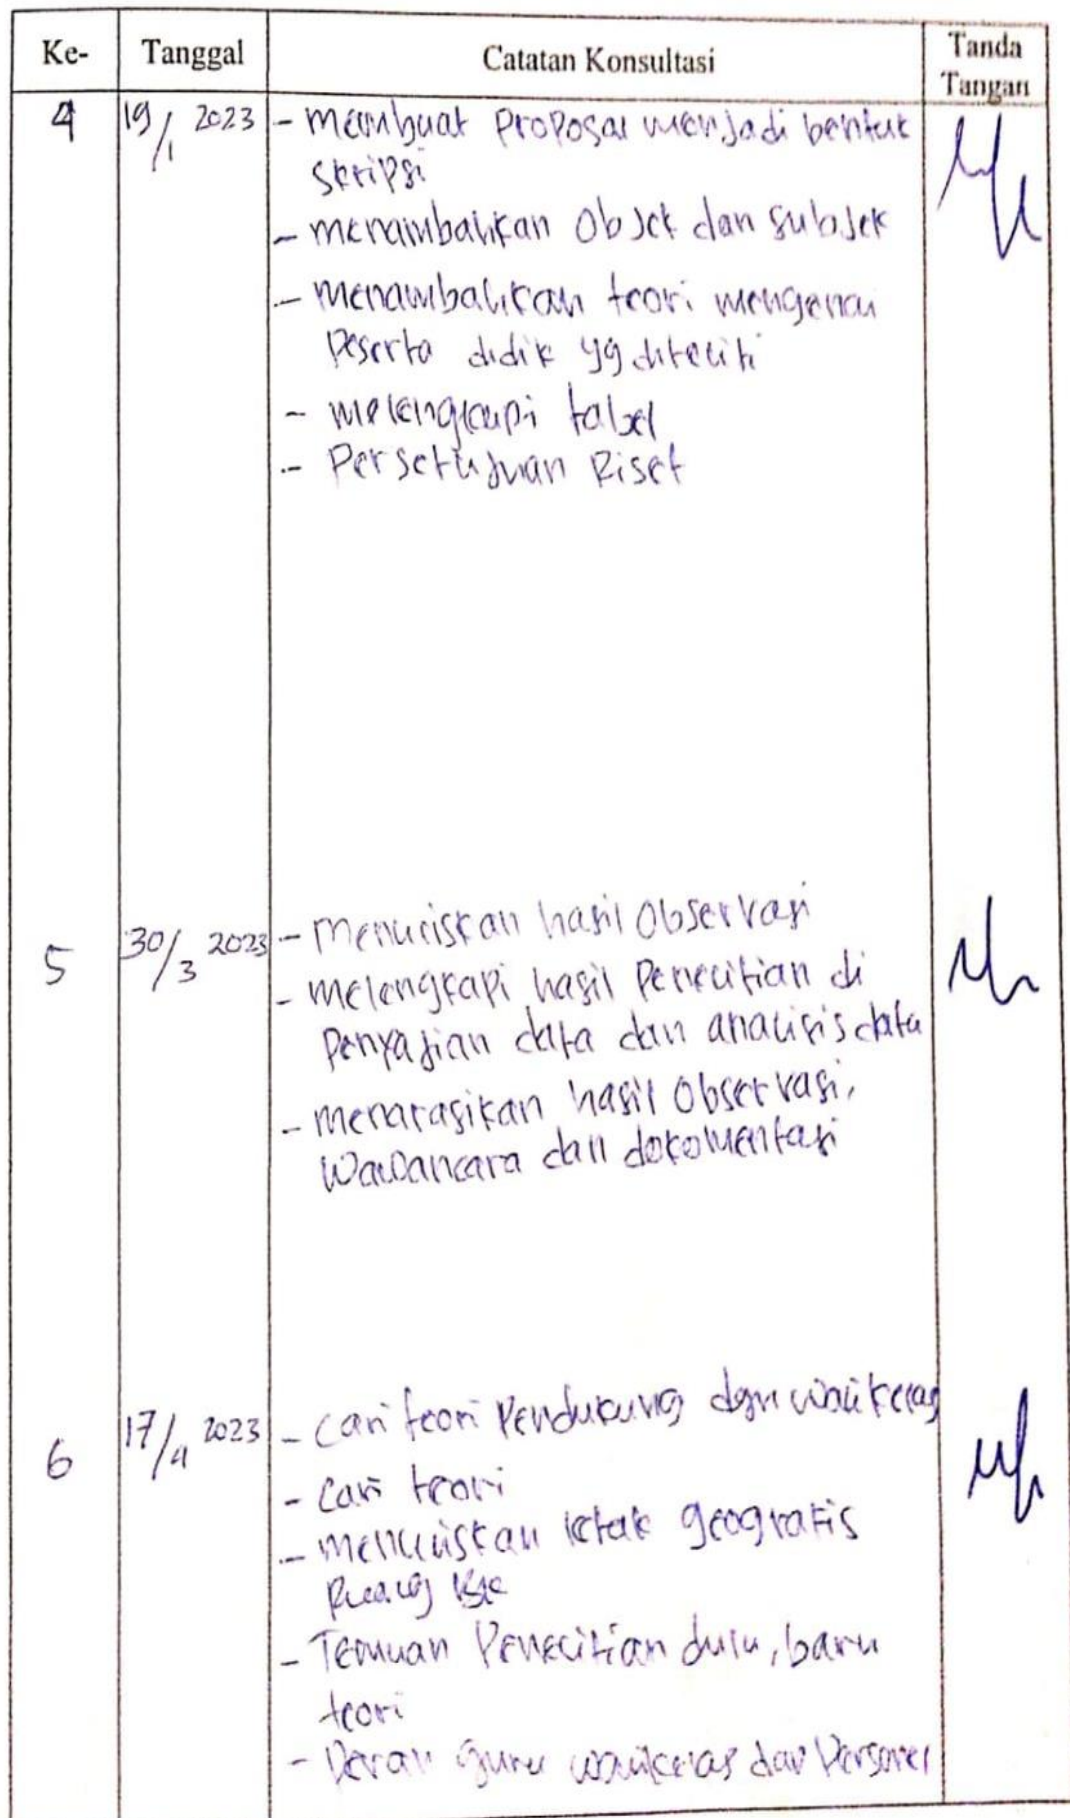 Ke-
Tanggal
Catatan Konsultasi
Tanda
Tangan
4
19/1 2023
- membuat proposal menjadi bentuk
skripsi
- menambahkan objek dan subjek
- menambahkan teori mengenai
peserta didik yg diteliti
- melengkapi tabel
- Persetujuan Riset
5
30/3 2023
- menuliskan hasil observasi
- melengkapi hasil penelitian di
penyajian data dan analisis data
- menarasikan hasil observasi,
wawancara dan dokumentasi
6
17/4 2023
- cari teori pendukung dgn wali kelas
- cari teori
- menuliskan letak geografis
Ruang BK
- Temuan Penelitian dulu, baru
teori
- Peran guru walikelas dan Personel